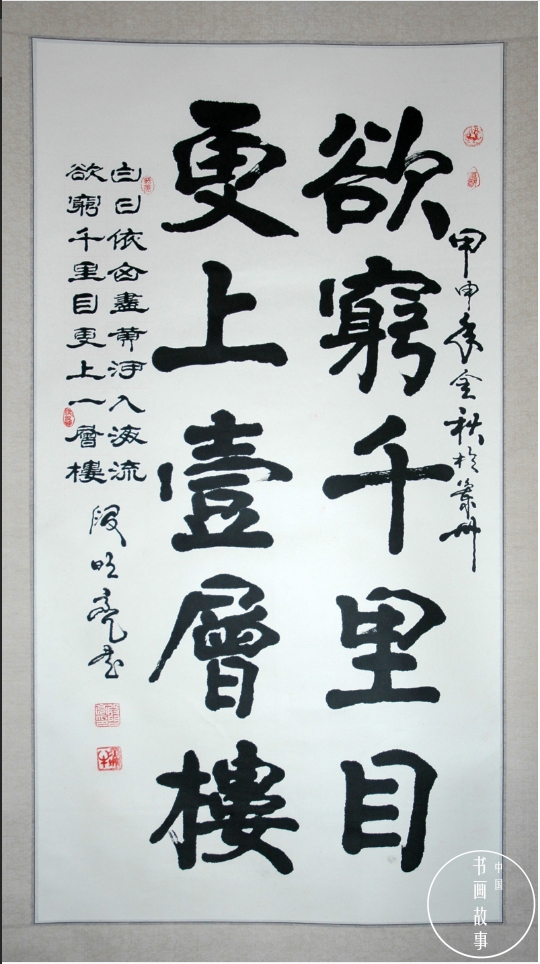 甲申年金秋於
欲窮千里目
更上壹層樓
白日依山盡黄河入海流
欲窮千里目更上一層樓
段明亮書
中国
书画故事